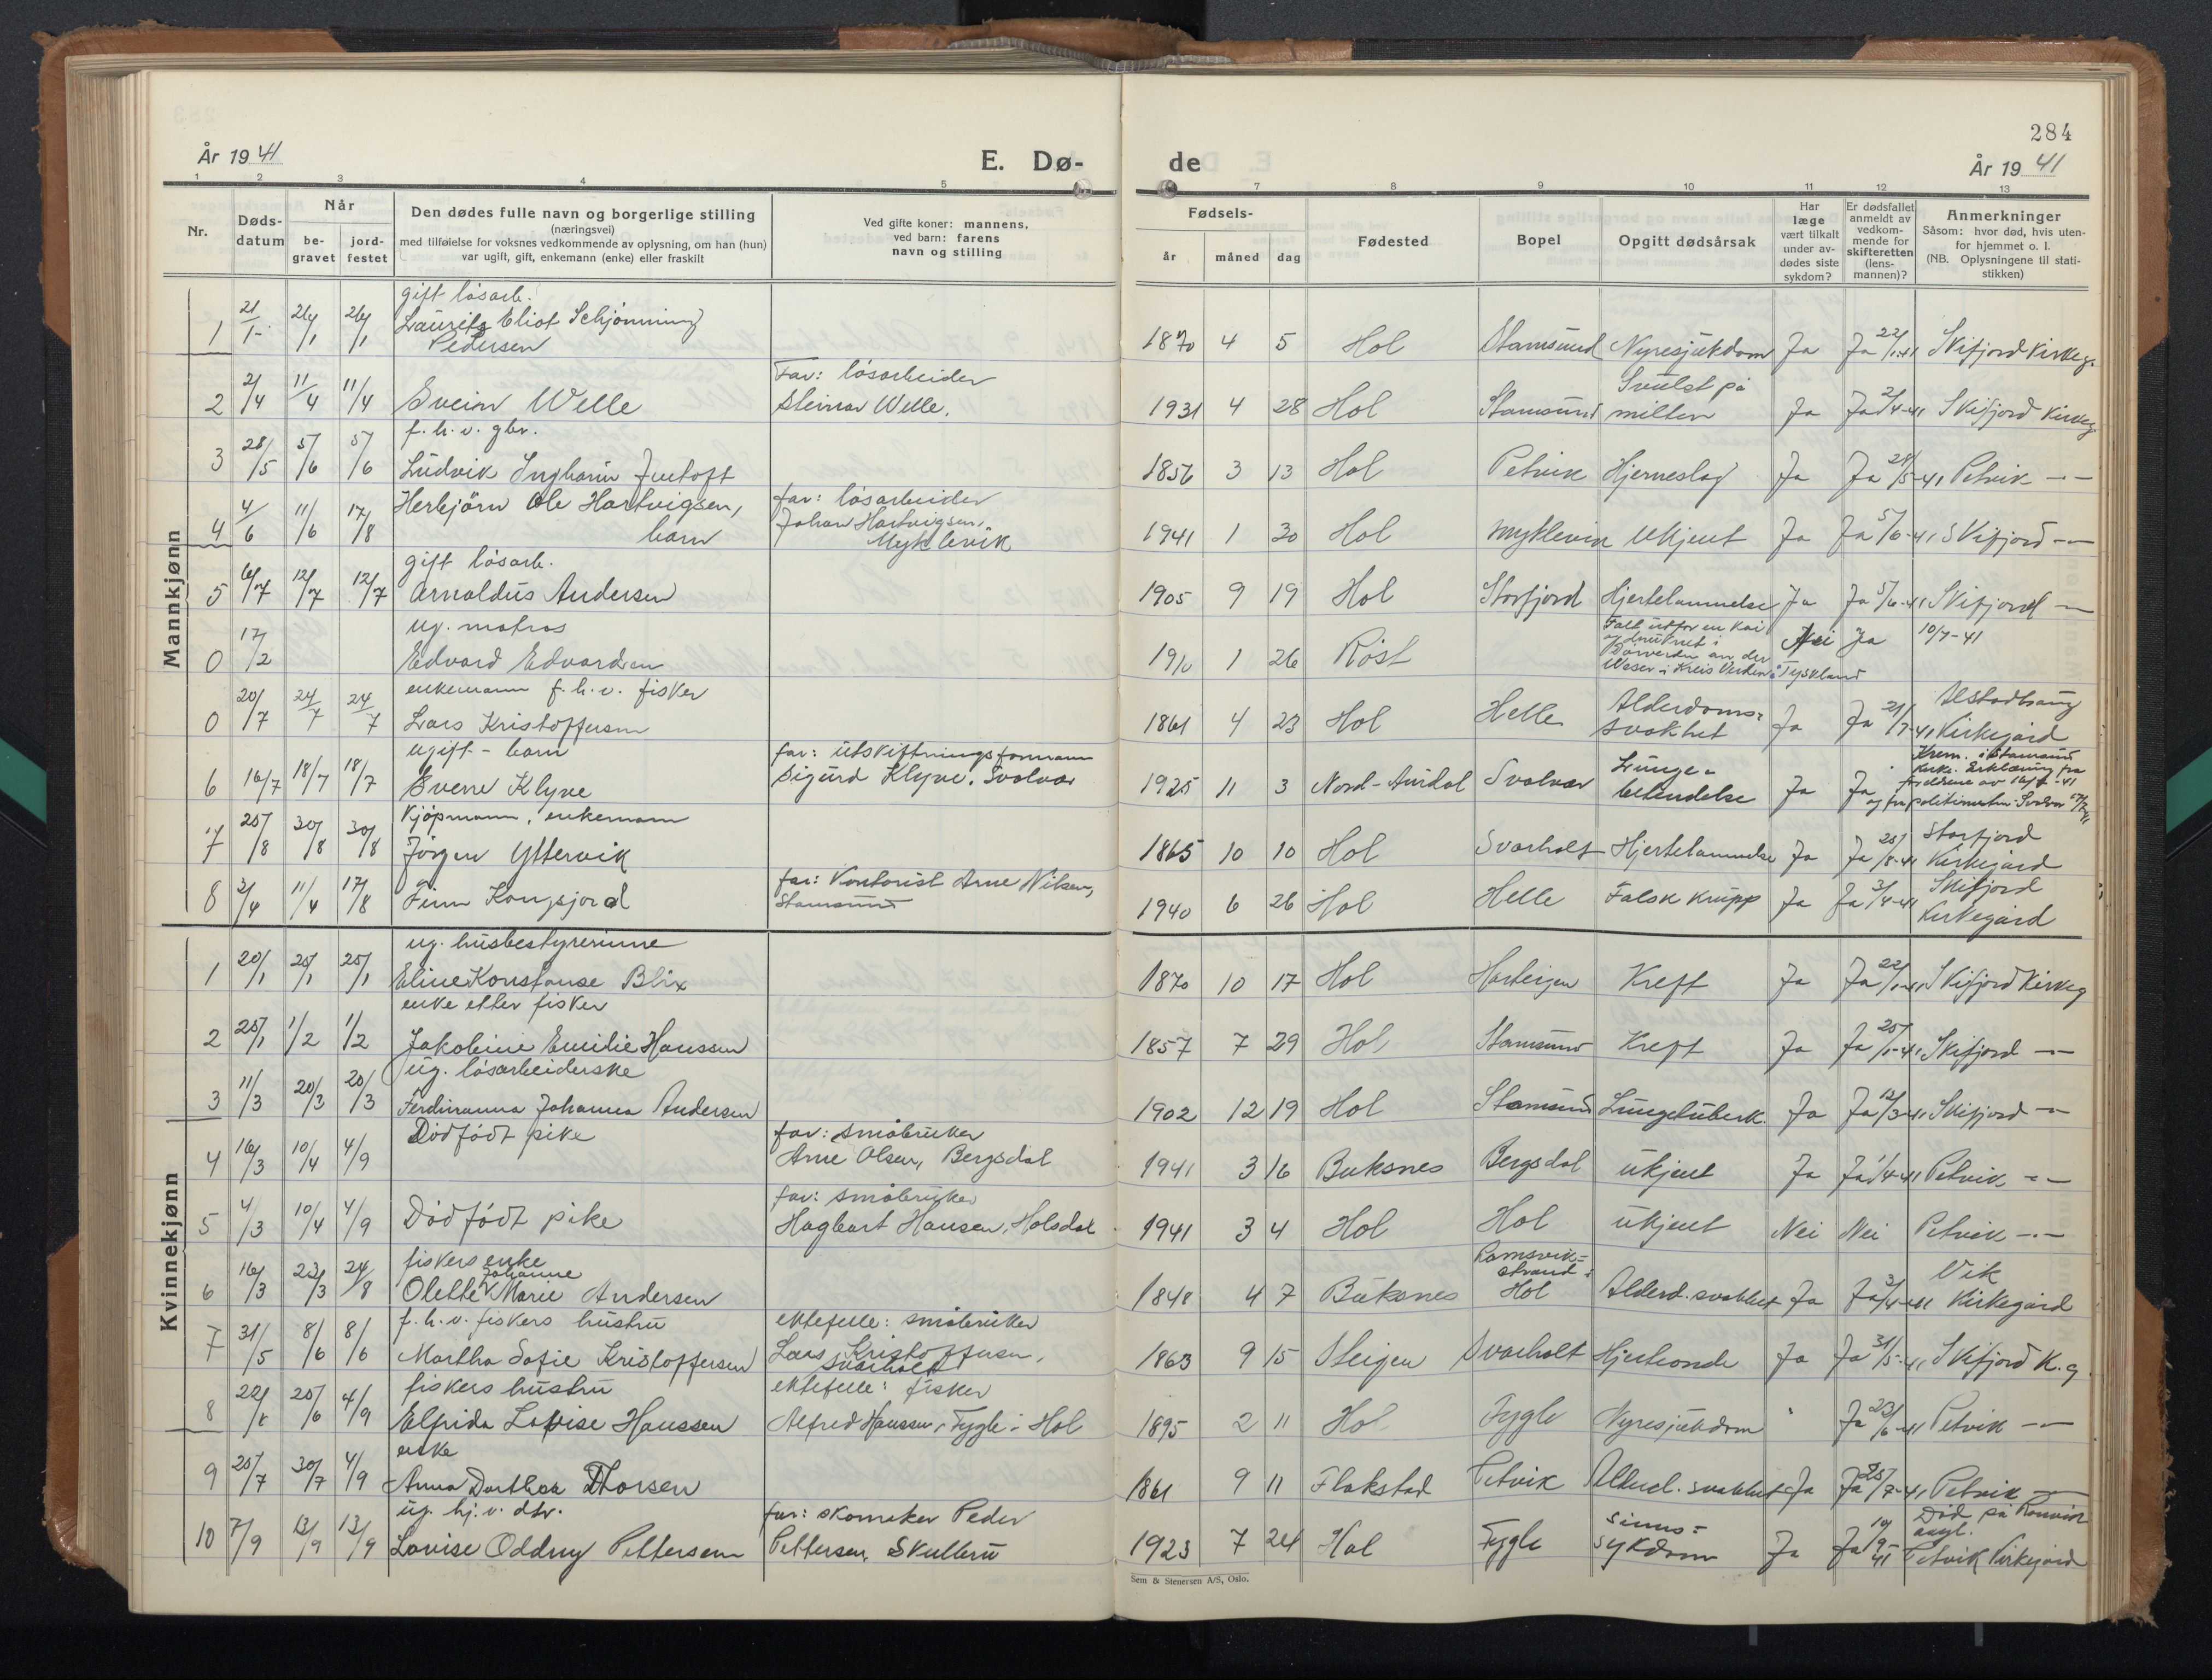 284
År 19 41
E. Dø-
de
År 19 41
1 2 3 4 5
7 8 9 10 11 12 13
Nr.
Døds-
datum
Når
be-
gravet
jord-
festet
Den dødes fulle navn og borgerlige stilling
(næringsvei)
med tilføielse for voksnes vedkommende av oplysning, om han (hun)
var ugift, gift, enkemann (enke) eller fraskilt
Ved gifte koner: mannens,
ved barn: farens
navn og stilling
Fødsels-
år måned dag
Fødested
Bopel
Opgitt dødsårsak
Har
læge
vært tilkalt
under av-
dødes siste
sykdom?
Er dødsfallet
anmeldt av
vedkom-
mende for
skifteretten
(lens-
mannen)?
Anmerkninger
Såsom: hvor død, hvis uten-
for hjemmet o. l.
(NB. Oplysningene til stati-
stikken)
Mannkjønn
gift løsarb.
1 21/1 26/1 26/1 Laurits Eliot Schjønning
Pedersen
1870 4 5 Hol Stamsund Nyresjukdom Ja Ja 22/1-41 Skifjord Kirkeg.
Far: løsarbeider
Svulst på
2 2/4 11/4 11/4 Svein Welle Steinar Welle. 1931 4 28 Hol Stamsund milten Ja Ja 2/4-41 Skifjord Kirkeg.
f.h.v. gbr.
3 28/5 5/6 5/6 Ludvik Ingharm Juetoft 1856 3 13 Hol Petvik Hjerneslag Ja Ja 28/5-41 Petvik -"-
4 4/6 11/6 17/8 Herbjørn Ole Hartvigsen, barn
far: løsarbeider
Johan Hartvigsen,
Myklevik
1941 1 30 Hol Myklevik Ukjent Ja Ja 5/6-41 Skifjord -"-
gift løsarb.
5 6/7 12/7 12/7 Arnoldus Andersen 1905 9 19 Hol Storfjord Hjertelammelse Ja Ja 5/6-41 Skifjord -"-
ug. matros
0 17/2 Edvard Edvardsen 1910 1 26 Røst
Falt utfor en kai
og druknet i
Dörverden an der
Weser i Kreis Verden i Tyskland
Nei Ja 10/7-41
enkemann f.h.v. fisker
0 20/7 24/7 24/7 Lars Kristoffersen 1861 4 23 Hol Helle Alderdoms-
svakhet Ja Ja 21/7-41
Alstadhaug
Kirkegård
ugift - barn
6 16/7 18/7 18/7 Sverre Klyve
far: utskiftningsformann
Sigurd Klyve. Svolvær
1925 11 3 Nord-Aurdal Svolvær Lunge-
betendelse Ja Ja
Krem. i Stamsund
kirke. Erklæring fra
foreldrene av 16/7-41
og fra politimesteren Svolvær
Kjøpmann, enkemann
7 25/8 30/8 30/8 Jørgen Yttervik 1865 10 10 Hol Svarholt Hjertelammelse Ja Ja 25/8-41
Storfjord
Kirkegård
8 2/4 11/4 17/8 Finn Kongsjord
far: Kontorist Arne Nilsen,
Stamsund
1940 6 26 Hol Helle Falsk krupp Ja Ja 3/4-41
Skifjord
Kirkegård
Kvinnekjønn
ug. husbestyrerinne
1 20/1 25/1 25/1 Eline Konstanse Blix 1870 10 17 Hol Kreft Ja Ja 22/1-41 Skifjord Kirkeg
enke etter fisker
2 25/1 1/2 1/2 Jakobine Emilie Hanssen 1857 7 29 Hol Stamsund Kreft Ja Ja 25/1-41 Skifjord -"-
ug. løsarbeiderske
3 11/3 20/3 20/3 Ferdinanna Johanna Andersen 1902 12 19 Hol Stamsund Lungetuberk. Ja Ja 12/3-41 Skifjord -"-
4 16/3 10/4 4/9 Dødfødt pike
far: småbruker
Arne Olsen, Bergsdal
1941 3 16 Buksnes Bergsdal ukjent Ja Ja 1/4-41 Petvik -"-
5 4/3 10/4 4/9 Dødfødt pike
far: småbruker
Hagbart Hansen, Holsdal
1941 3 4 Hol Hol ukjent Nei Nei Petvik -"-
fiskers enke
6 16/3 23/3 24/8 Olette Johanne Marie Andersen 1848 4 7 Buksnes
Ramsvik-
strand i
Hol
Alderd. svakhet Ja Ja 3/4-41
Vik
Kirkegård
f.h.v. fiskers hustru
7 31/5 8/6 8/6 Martha Sofie Kristoffersen
ektefelle: småbruker
Lars Kristoffersen,
Svarholt
1863 9 15 Steigen Svarholt Hjerteonde Ja Ja 31/5-41 Skifjord K.g.
fiskers hustru
8 22/6 25/6 4/9 Elfrida Lovise Hanssen
ektefelle: fisker
Alfred Hanssen, Fygle i Hol
1895 2 11 Hol Fygle Nyresjukdom " Ja 23/6-41 Petvik -"-
enke
9 25/7 30/7 4/9 Anna Dorthea Thorsen 1861 9 11 Flakstad Petvik Alderd. svakhet Ja Ja 25/7-41 Petvik -"-
ug. hj.v. dtr.
10 7/9 13/9 13/9 Lovise Oddny Pettersen
far: skomaker Peder
Pettersen, Skulbru
1923 7 24 Hol Fygle Sinns-
sykdom Ja Ja 10/9-41
Død på Rønvik
asyl.
Petvik Kirkegård
Sem & Stenersen A/S, Oslo.